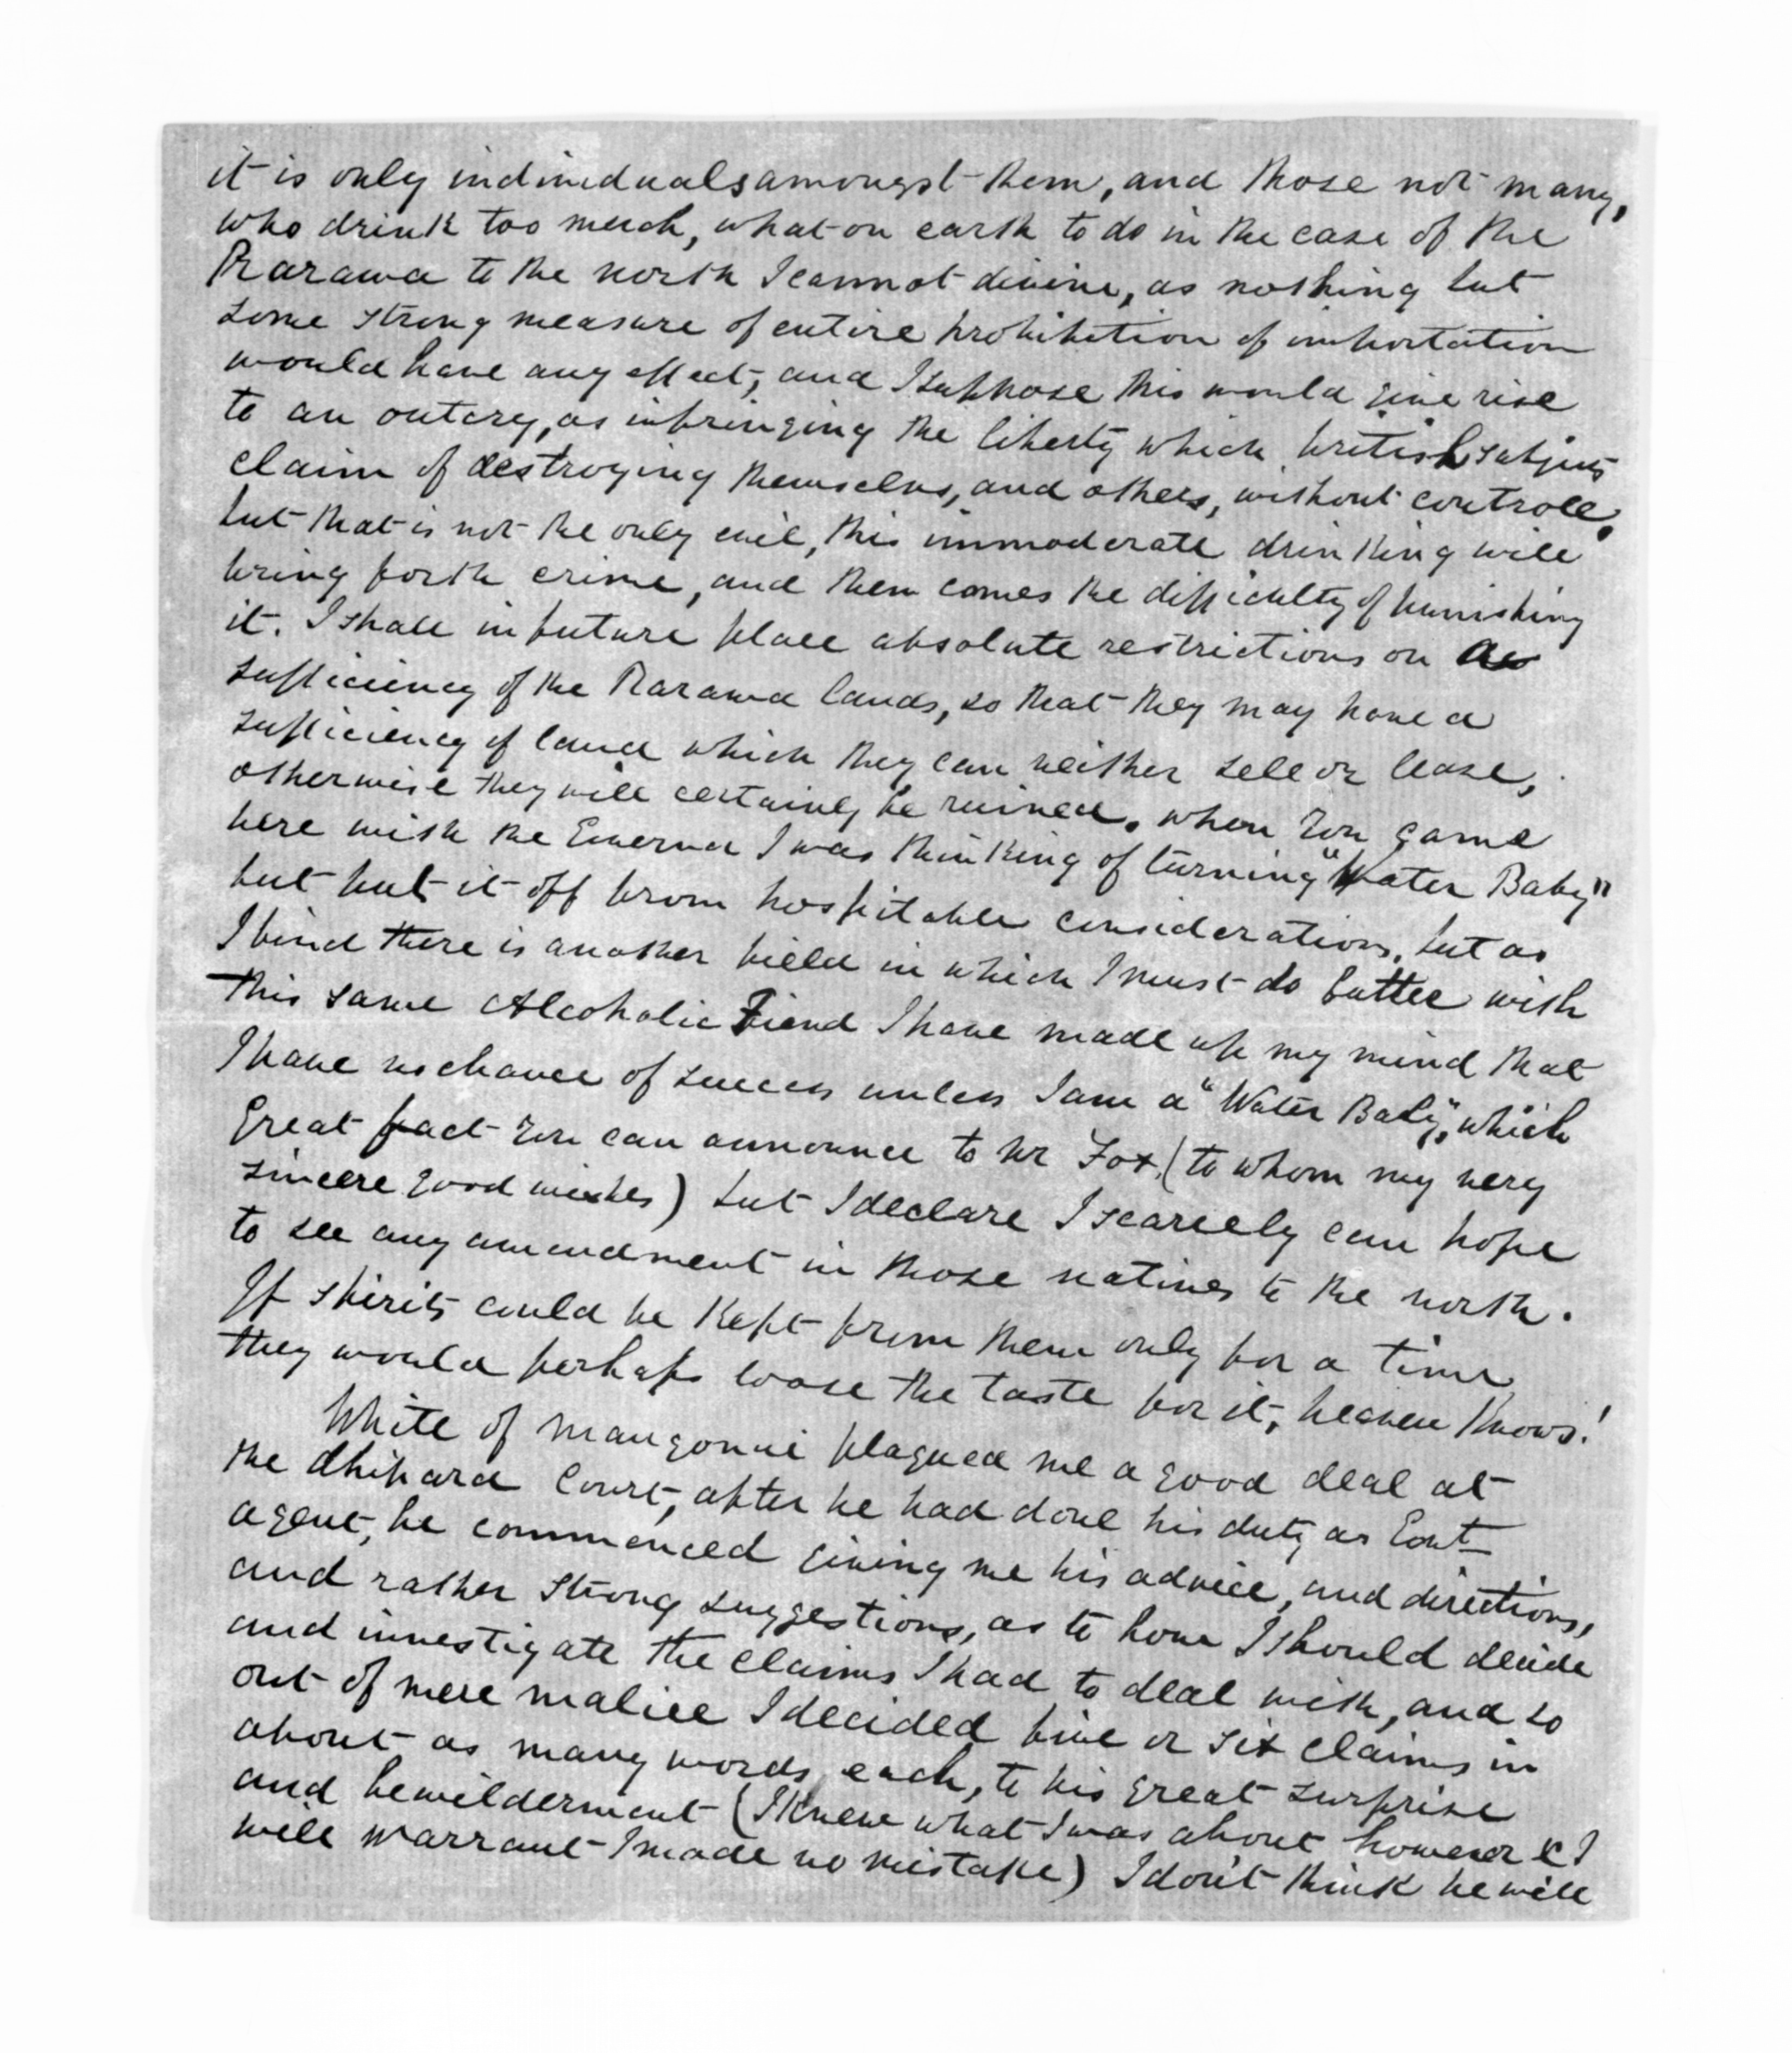 it is only individuals amongst them, and those not many,
who drink too much, what on earth to do in the case of the
Rarawa to the north I cannot divine, as nothing but
some strong measure of entire prohibition of importation
would have any effect, and I suppose this would give rise
to an outcry, as infringing the liberty which british subjects
claim of destroying themselves, and others, without controll.
but that is not the only evil, this immoderate drinking will
bring forth crime, and then comes the difficulty of punishing
it. I shall in future place absolute restrictions on a
sufficiency of the Rarawa lands, so that they may have a
sufficiency of land which they can neither sell or lease,
otherwise they will certainly be ruined. when you came
here with the Governor I was thinking of turning "Water Baby"
but put it off from hospitable considerations, but as
I find there is another field in which I must do battle with
this same Alcoholic Fiend I have made up my mind that
I have no chance of success unless I am a "Water Baby", which
great fact you can announce to Mr Fox, (to whom my very
sincere good wishes) but I declare I scarcely can hope
to see any amendment in those natives to the north.
If spirits could be kept from them only for a time
they would perhaps loose the taste for it, heaven knows!
White of Mangonui plagued me a good deal at
the Ahipara Court, after he had done his duty as Govt
agent, he commenced giving me his advice, and directions,
and rather strong suggestions, as to how I should decide
and investigate the claims I had to deal with, and so
out of mere malice I decided five or six claims in
about as many words each, to his great surprise
and bewilderment (I knew what I was about however & I
will warrant I made no mistake) I don't think he will